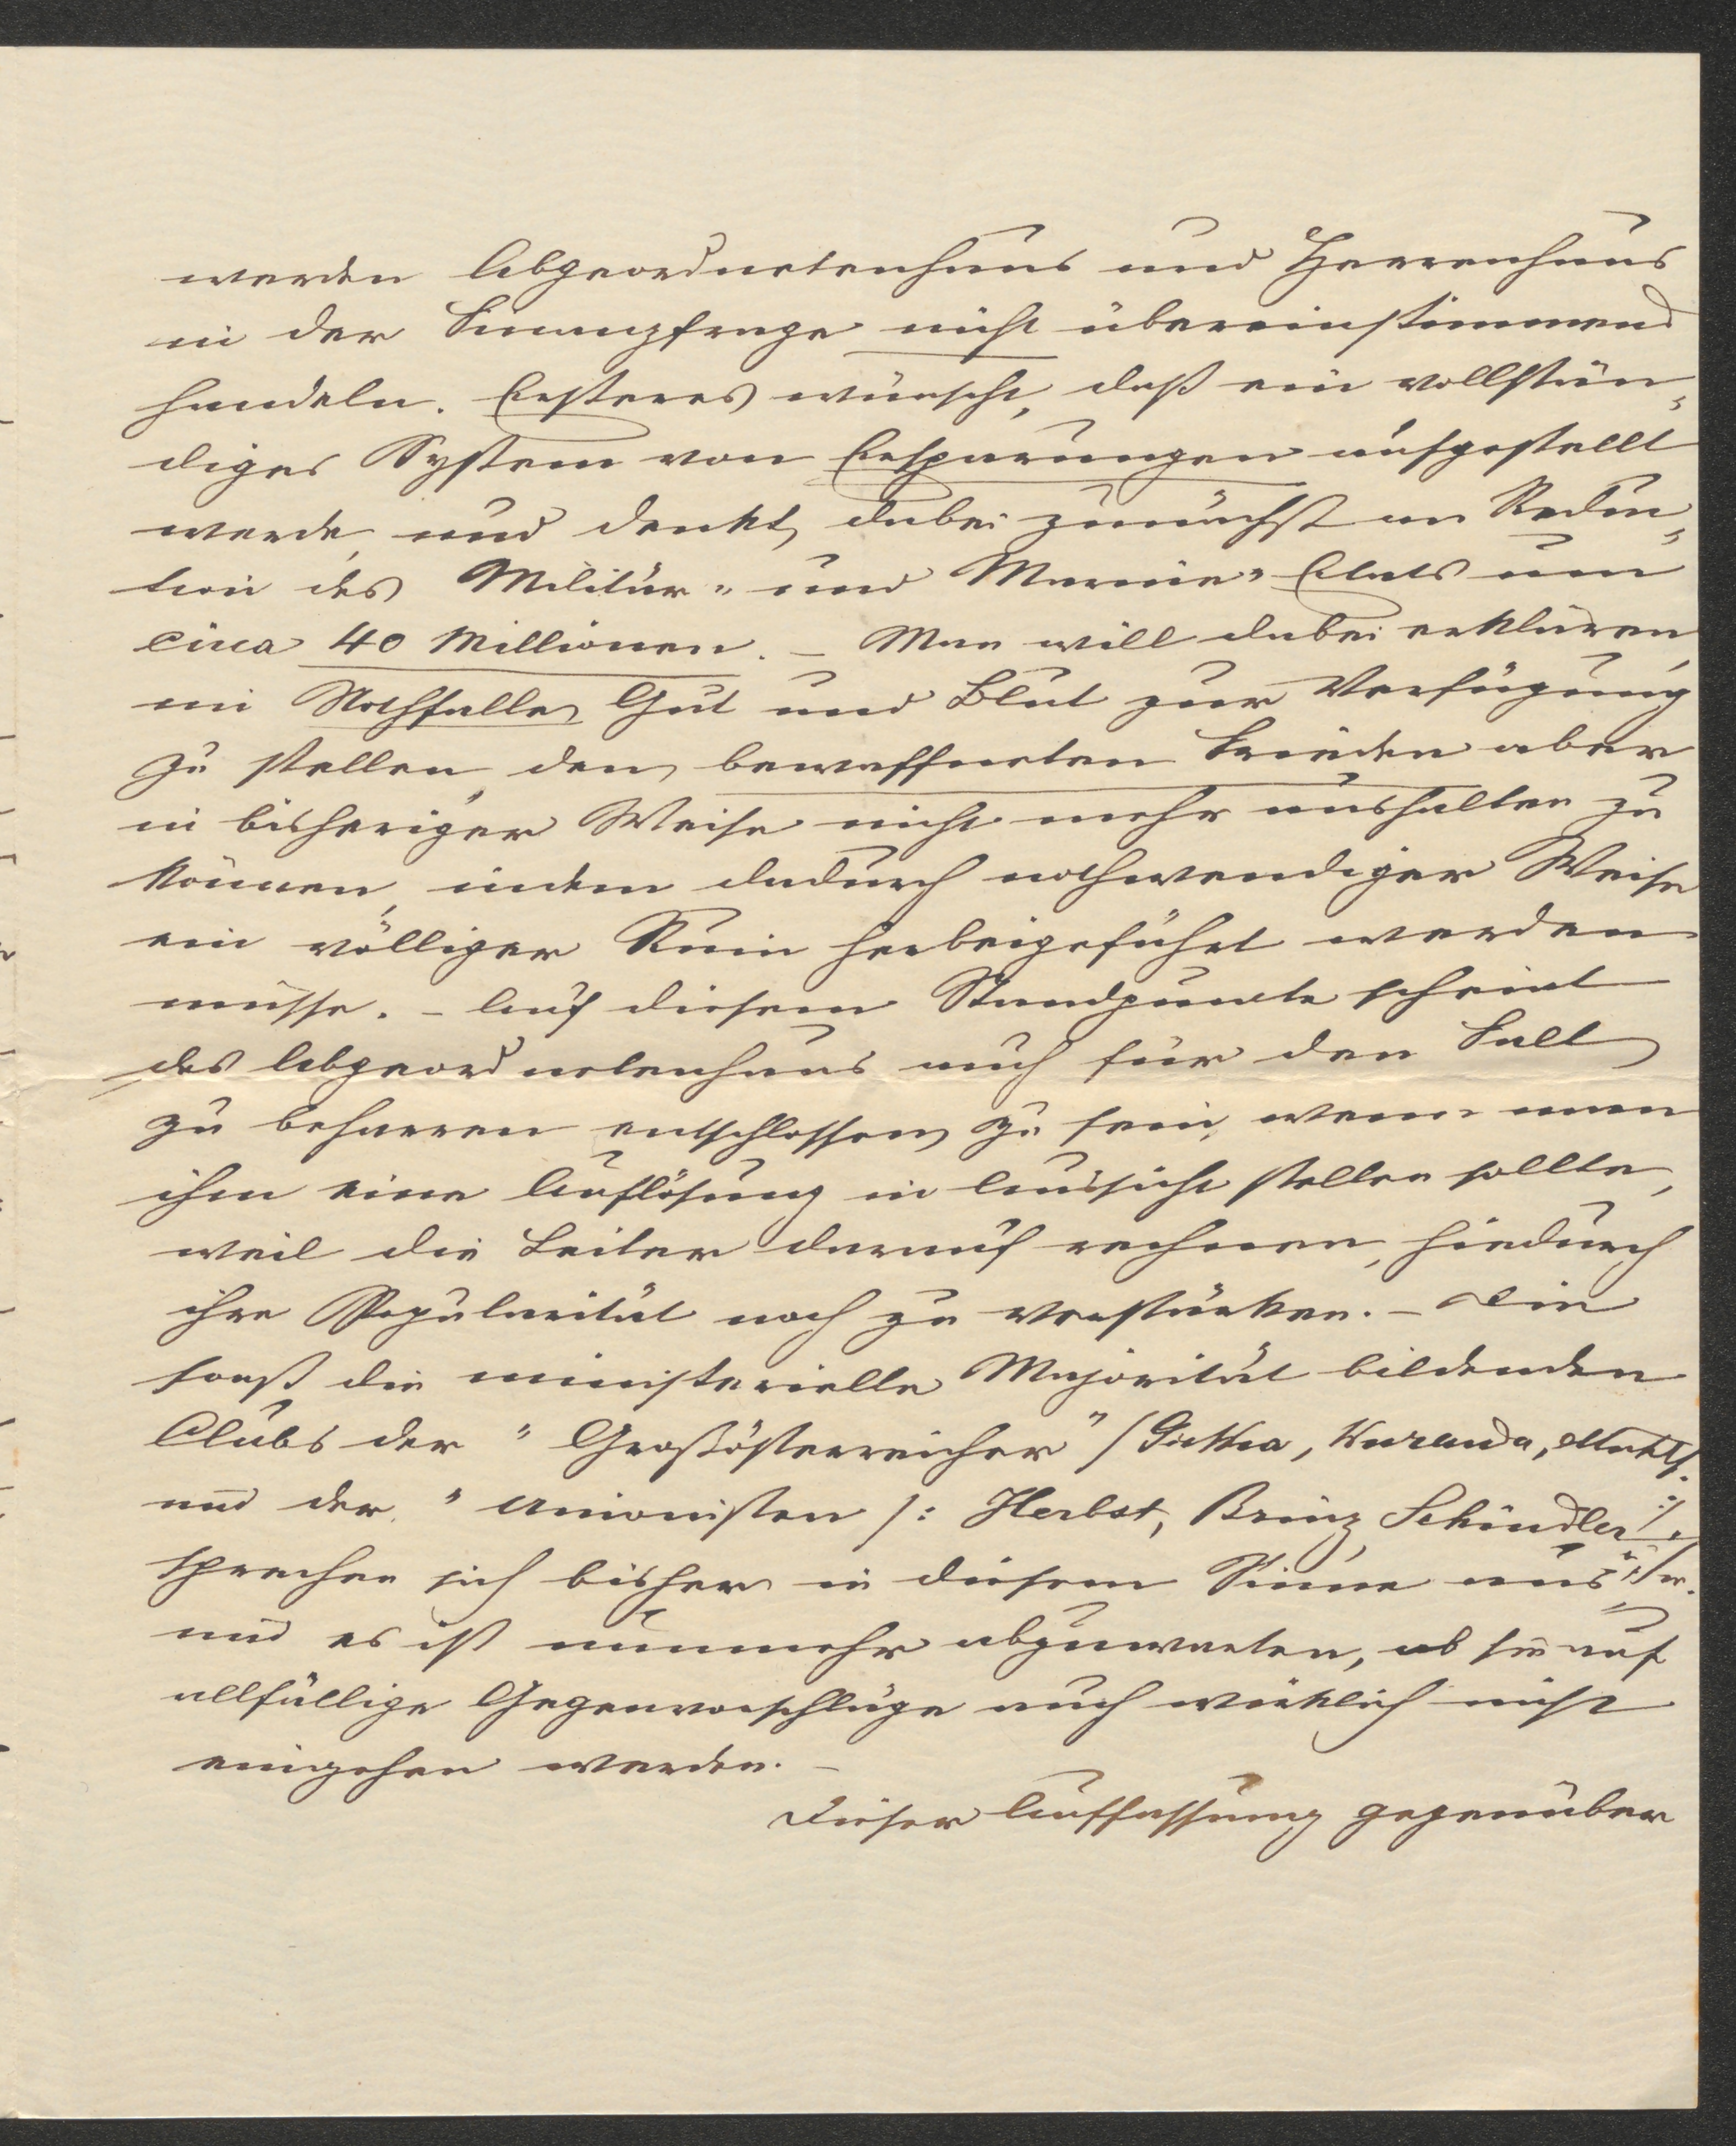 werden Abgeordnetenhaus und Herrenhaus
in der Finanzfrage nicht übereinstimmend
handeln. Ersteres wünscht, daß ein vollstän„
diges System von Ersparungen aufgestellt
werde, und denkt dabei zunächst an Reduc„
tion des Militär= und Marine= Etats um
circa 40 Millionen. – Man will dabei erklären,
im Nothfalle Gut und Blut zur Verfügung
zu stellen, den bewaffneten Frieden aber
in bisheriger Weise nicht mehr aushalten zu
können, indem dadurch nothwendiger Weise
ein völliger Ruin herbeigeführt werden
müsse. – Auf diesem Standpuncte scheint
das Abgeordnetenhaus auch für den Fall
zu beharren entschlossen zu sein, wenn man
ihm eine Auflösung in Aussicht stellen sollte,
weil die Leiter darauf rechnen, hiedurch
ihre Popularität noch zu verstärken. – Die
sonst die ministerielle Majorität bildenden
Clubs der "Großösterreicher" /: Giskra, Kuranda,
und der "Unionisten /: Herbst, Brinz, Schindler :/
sprechen sich bisher in diesem Sinne aus,
und es ist nunmehr abzuwarten, ob sie auf
allfällige Gegenvorschläge auch wirklich nicht
eingehen werden. –
Dieser Auffassung gegenüber